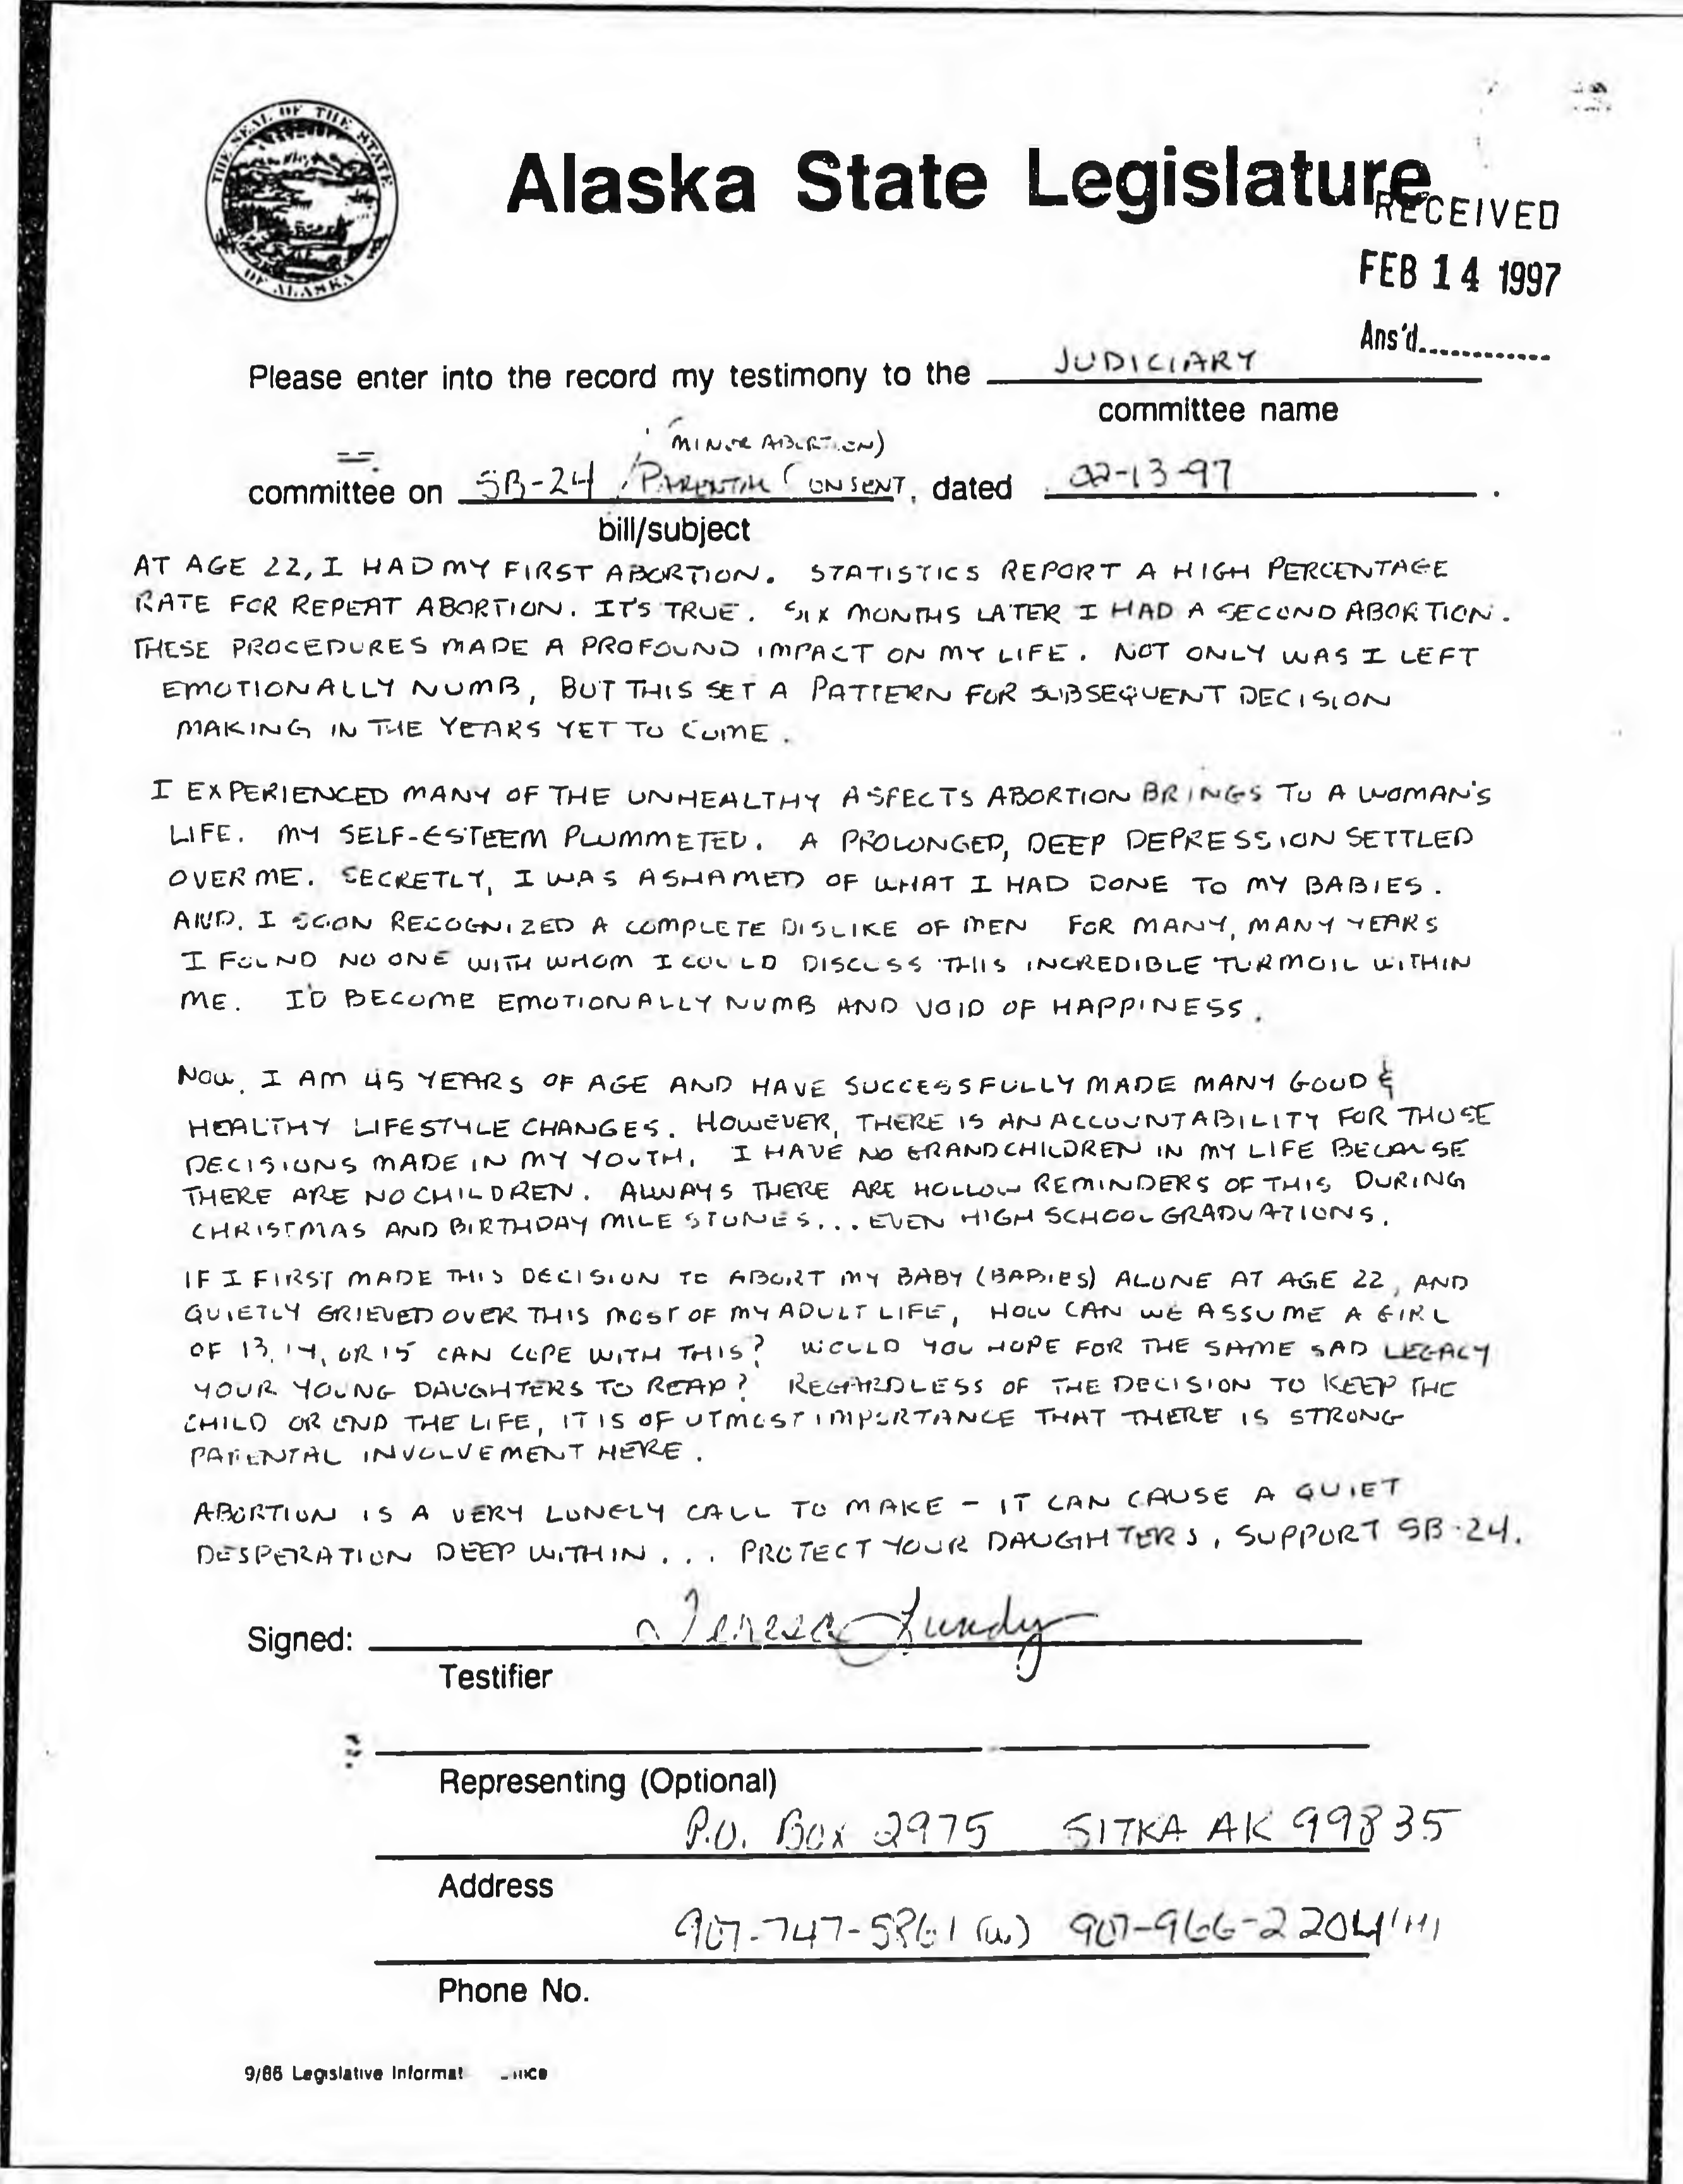 THE SEAL OF THE STATE OF ALASKA
Alaska State Legislature
RECEIVED
FEB 14 1997
Ans'd.............
Please enter into the record my testimony to the JUDICIARY
committee name
(MINOR ABORTION)
committee on SB-24 PARENTAL CONSENT, dated 02-13-97.
bill/subject
AT AGE 22, I HAD MY FIRST ABORTION. STATISTICS REPORT A HIGH PERCENTAGE
RATE FOR REPEAT ABORTION. IT'S TRUE. SIX MONTHS LATER I HAD A SECOND ABORTION.
THESE PROCEDURES MADE A PROFOUND IMPACT ON MY LIFE. NOT ONLY WAS I LEFT
EMOTIONALLY NUMB, BUT THIS SET A PATTERN FOR SUBSEQUENT DECISION
MAKING IN THE YEARS YET TO COME.
I EXPERIENCED MANY OF THE UNHEALTHY ASPECTS ABORTION BRINGS TO A WOMAN'S
LIFE. MY SELF-ESTEEM PLUMMETED. A PROLONGED, DEEP DEPRESSION SETTLED
OVER ME. SECRETLY, I WAS ASHAMED OF WHAT I HAD DONE TO MY BABIES.
AND, I SOON RECOGNIZED A COMPLETE DISLIKE OF MEN FOR MANY, MANY YEARS
I FOUND NO ONE WITH WHOM I COULD DISCUSS THIS INCREDIBLE TURMOIL WITHIN
ME. I'D BECOME EMOTIONALLY NUMB AND VOID OF HAPPINESS.
NOW, I AM 45 YEARS OF AGE AND HAVE SUCCESSFULLY MADE MANY GOOD &
HEALTHY LIFESTYLE CHANGES. HOWEVER, THERE IS AN ACCOUNTABILITY FOR THOSE
DECISIONS MADE IN MY YOUTH. I HAVE NO GRANDCHILDREN IN MY LIFE BECAUSE
THERE ARE NO CHILDREN. ALWAYS THERE ARE HOLLOW REMINDERS OF THIS DURING
CHRISTMAS AND BIRTHDAY MILESTONES... EVEN HIGH SCHOOL GRADUATIONS.
IF I FIRST MADE THIS DECISION TO ABORT MY BABY (BABIES) ALONE AT AGE 22, AND
QUIETLY GRIEVED OVER THIS MOST OF MY ADULT LIFE, HOW CAN WE ASSUME A GIRL
OF 13, 14, OR 15 CAN COPE WITH THIS? WOULD YOU HOPE FOR THE SAME SAD LEGACY
YOUR YOUNG DAUGHTERS TO REAP? REGARDLESS OF THE DECISION TO KEEP THE
CHILD OR END THE LIFE, IT IS OF UTMOST IMPORTANCE THAT THERE IS STRONG
PARENTAL INVOLVEMENT HERE.
ABORTION IS A VERY LONELY CALL TO MAKE - IT CAN CAUSE A QUIET
DESPERATION DEEP WITHIN... PROTECT YOUR DAUGHTERS, SUPPORT SB-24.
Signed: Teresa Lundy
Testifier
Representing (Optional)
P.O. Box 2975 SITKA AK 99835
Address
907-747-5861 (W) 907-966-2204 (H)
Phone No.
9/86 Legislative